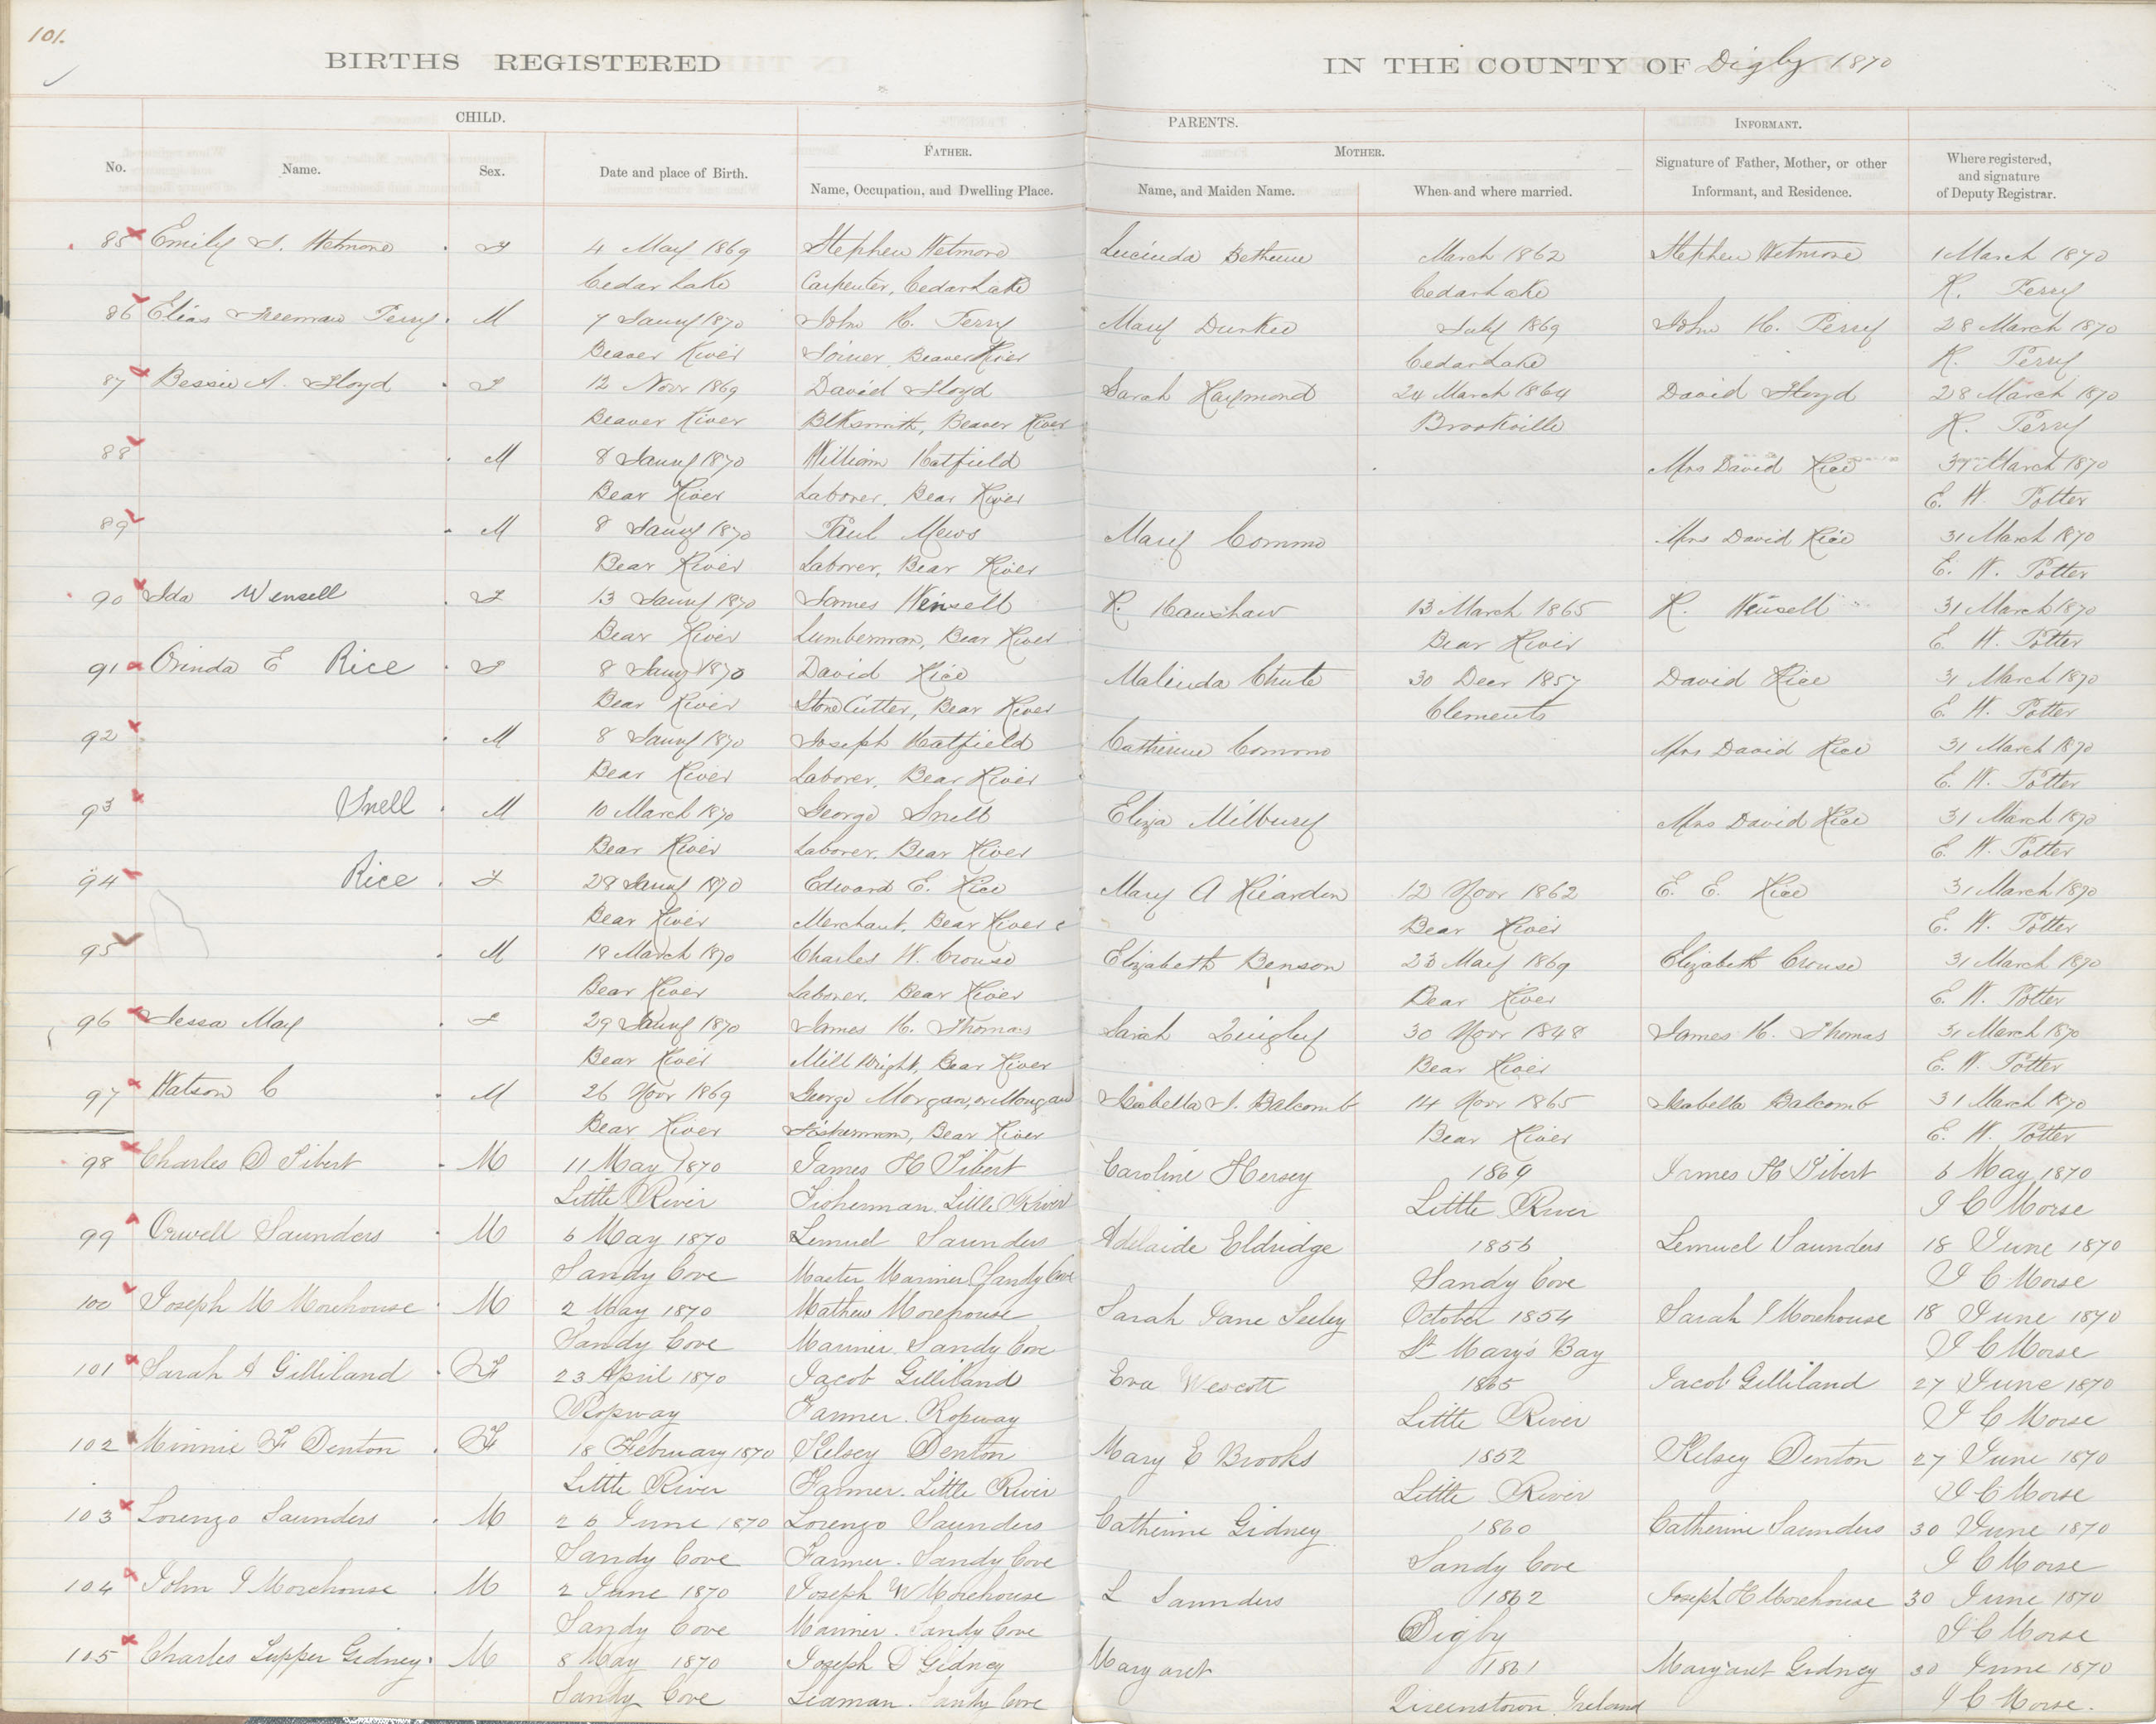 101.
BIRTHS REGISTERED IN THE COUNTY OF Digby 1870
CHILD. PARENTS. INFORMANT.
FATHER. MOTHER.
No. Name. Sex. Date and place of Birth. Name, Occupation, and Dwelling Place. Name, and Maiden Name. When and where married. Signature of Father, Mother, or other Informant, and Residence. Where registered, and signature of Deputy Registrar.
85 Emily S. Wetmore F 4 May 1869 Stephen Wetmore Lucinda Bethune March 1862 Stephen Wetmore 1 March 1870
Cedar Lake Carpenter, Cedar Lake Cedar Lake R. Perry
86 Elias Freeman Perry M 7 Jany 1870 John H. Perry Mary Durkee July 1869 John H. Perry 28 March 1870
Beaver River Joiner, Beaver River Cedar Lake R. Perry
87 Bessie A. Floyd F 12 Novr 1869 David Floyd Sarah Raymond 24 March 1864 David Floyd 28 March 1870
Beaver River Blksmith, Beaver River Brookville R. Perry
88 M 8 Jany 1870 William Hatfield Mrs David Rice 31 March 1870
Bear River Laborer, Bear River E. W. Potter
89 M 8 Jany 1870 Paul Mews Mary Commo Mrs David Rice 31 March 1870
Bear River Laborer, Bear River E. W. Potter
90 Ida Wensell F 13 Jany 1870 James Wensell R. Hanshaw 13 March 1865 R. Wensell 31 March 1870
Bear River Lumberman, Bear River Bear River E. W. Potter
91 Orinda E Rice F 8 Jany 1870 David Rice Malinda Chute 30 Decr 1857 David Rice 31 March 1870
Bear River Stone Cutter, Bear River Clements E. W. Potter
92 M 8 Jany 1870 Joseph Hatfield Catherine Comono Mrs David Rice 31 March 1870
Bear River Laborer, Bear River E. W. Potter
93 Snell M 10 March 1870 George Snell Eliza Milbury Mrs David Rice 31 March 1870
Bear River Laborer, Bear River E. W. Potter
94 Rice F 28 Jany 1870 Edward E. Rice Mary A 12 Novr 1862 E. E. Rice 31 March 1870
Bear River Merchant, Bear River Bear River E. W. Potter
95 M 19 March 1870 Charles W. Crouse Elizabeth Benson 23 May 1869 Elizabeth Crouse 31 March 1870
Bear River Laborer, Bear River Bear River E. W. Potter
96 Jessa May F 29 Jany 1870 James H. Thomas Sarah Quigley 30 Novr 1848 James H. Thomas 31 March 1870
Bear River Mill Wright, Bear River Bear River E. W. Potter
97 Watson C M 26 Novr 1869 George Morgan, or Mongard Isabella J. Balcomb 14 Novr 1865 Isabella Balcomb 31 March 1870
Bear River Fisherman, Bear River Bear River E. W. Potter
98 Charles D Tibert M 11 May 1870 James H Tibert Caroline Hersey 1869 James H Tibert 6 May 1870
Little River Fisherman, Little River Little River J C Morse
99 Orwell Saunders M 6 May 1870 Lemuel Saunders Adelaide Eldridge 1856 Lemuel Saunders 18 June 1870
Sandy Cove Master Mariner Sandy Cove Sandy Cove J C Morse
100 Joseph M Morehouse M 2 May 1870 Mathew Morehouse Sarah Jane Seeley October 1854 Sarah J Morehouse 18 June 1870
Sandy Cove Mariner, Sandy Cove St Mary's Bay J C Morse
101 Sarah A Gilliland F 23 April 1870 Jacob Gilliland Eva Wescott 1865 Jacob Gilliland 27 June 1870
Ropway Farmer. Ropway Little River J C Morse
102 Minnie F Denton F 18 February 1870 Kelsey Denton Mary E Brooks 1852 Kelsey Denton 27 June 1870
Little River Farmer. Little River Little River J C Morse
103 Lorenzo Saunders M 26 June 1870 Lorenzo Saunders Catherine Gidney 1860 Catherine Saunders 30 June 1870
Sandy Cove Farmer. Sandy Cove Sandy Cove J C Morse
104 John J Morehouse M 2 June 1870 Joseph W Morehouse L Saunders 1862 Joseph H Morehouse 30 June 1870
Sandy Cove Mariner. Sandy Cove Digby J C Morse
105 Charles Tupper Gidney M 8 May 1870 Joseph D Gidney Margaret 1861 Margaret Gidney 30 June 1870
Sandy Cove Seaman. Sandy Cove Queenstown, Ireland J C Morse.